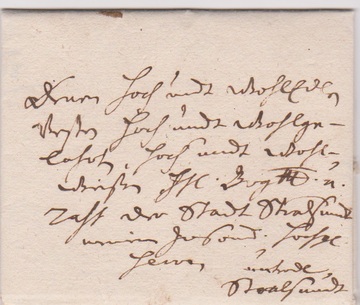 Denen Hoch undt WohlEdlen
Vesten Hoch undt Wohlge-
lahrten, Hoch undt Wohl-
Weißen HH.
Raht der Stadt Stralsundt
meinen Hoch
Herren
Stralsundt